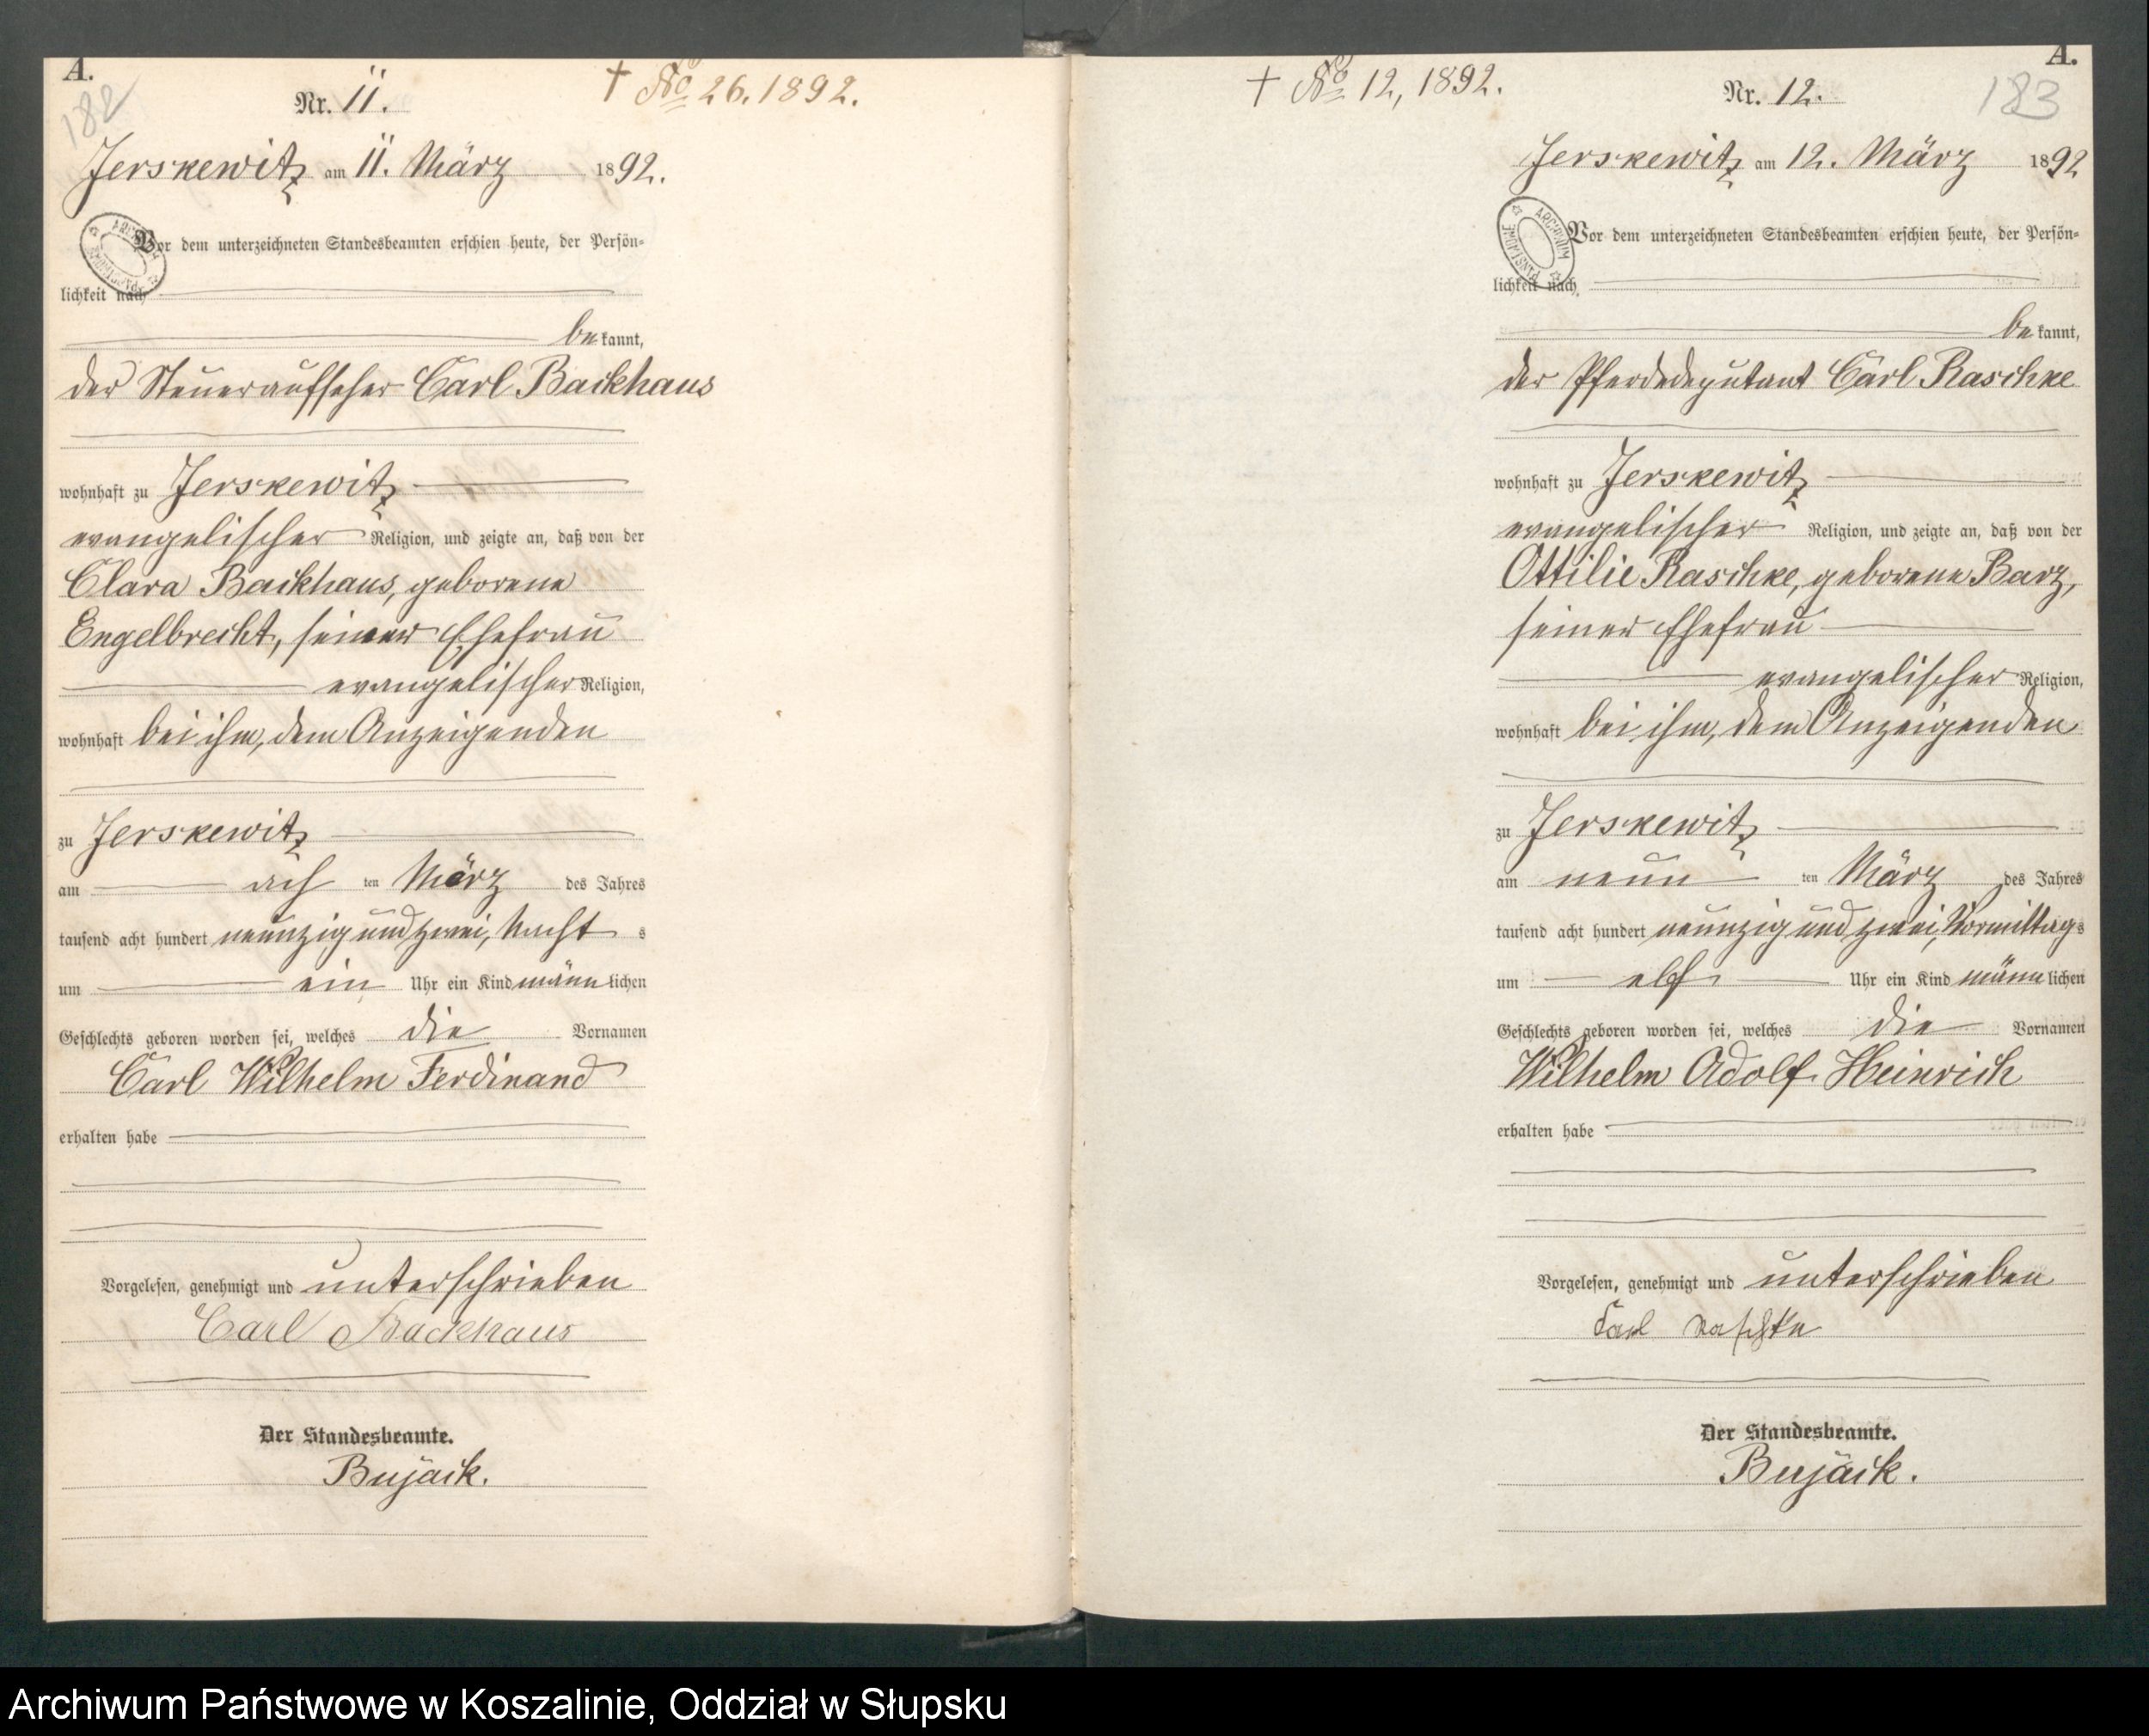 A.
182
Nr. 11.
† No 26. 1892.
Jerskewitz am 11. März 1892.
Vor dem unterzeichneten Standesbeamten erschien heute, der Persön-
lichkeit nach
bekannt,
der Steueraufseher Carl Backhaus
wohnhaft zu Jerskewitz
evangelischer Religion, und zeigte an, daß von der
Clara Backhaus, geborene
Engelbrecht, seiner Ehefrau
evangelischer Religion,
wohnhaft bei ihm, dem Anzeigenden
zu Jerskewitz
am ach ten März des Jahres
tausend acht hundert neunzig und zwei, Nacht s
um ein Uhr ein Kind männlichen
Geschlechts geboren worden sei, welches die Vornamen
Carl Wilhelm Ferdinand
erhalten habe
Vorgelesen, genehmigt und unterschrieben
Carl Backhaus
Der Standesbeamte.
Bujack.
A.
† No 12, 1892.
Nr. 12.
183
Jerskewitz am 12. März 1892
ARCHIWUM PAŃSTWOWE
Vor dem unterzeichneten Standesbeamten erschien heute, der Persön-
lichkeit nach
bekannt,
der Pferdedeputant Carl Raschke
wohnhaft zu Jerskewitz
evangelischer Religion, und zeigte an, daß von der
Ottilie Raschke, geborene Barz,
seiner Ehefrau
evangelischer Religion,
wohnhaft bei ihm, dem Anzeigenden
zu Jerskewitz
am neun ten März des Jahres
tausend acht hundert neunzig und zwei, Vormittags
um elf Uhr ein Kind männlichen
Geschlechts geboren worden sei, welches die Vornamen
Wilhelm Adolf Heinrich
erhalten habe
Vorgelesen, genehmigt und unterschrieben
Carl Raschke
Der Standesbeamte.
Bujack.
Archiwum Państwowe w Koszalinie, Oddział w Słupsku